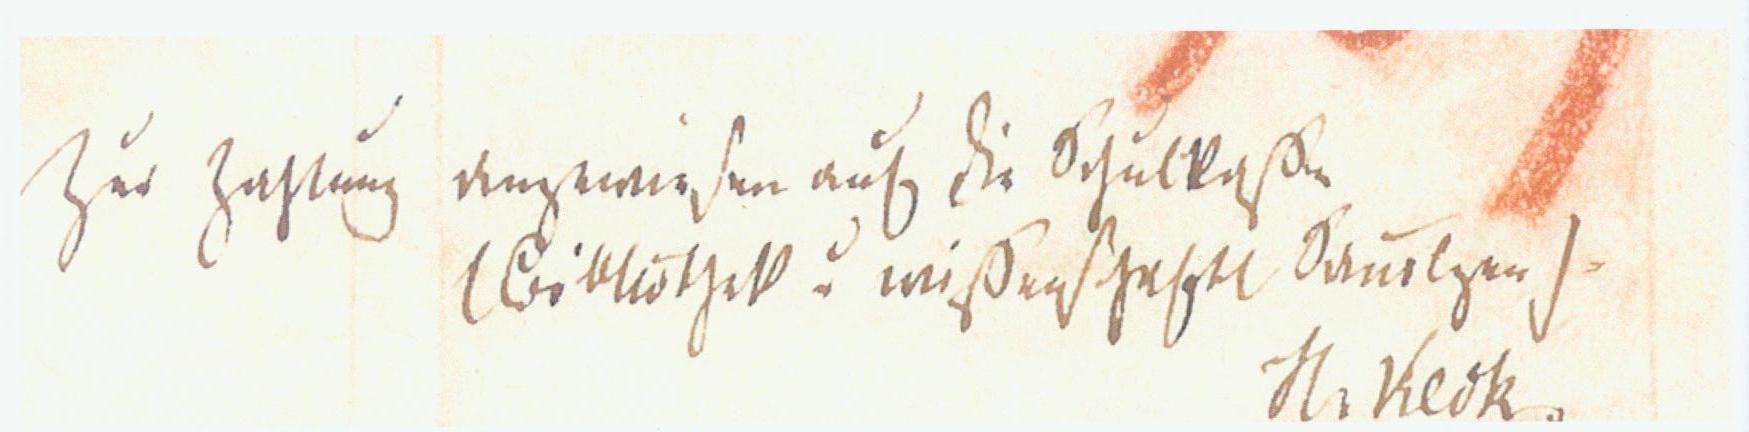 Zur Zahlung angewiesen auf die Schulkasse
(Bibliothek u wissenschaftl
H. Keck.